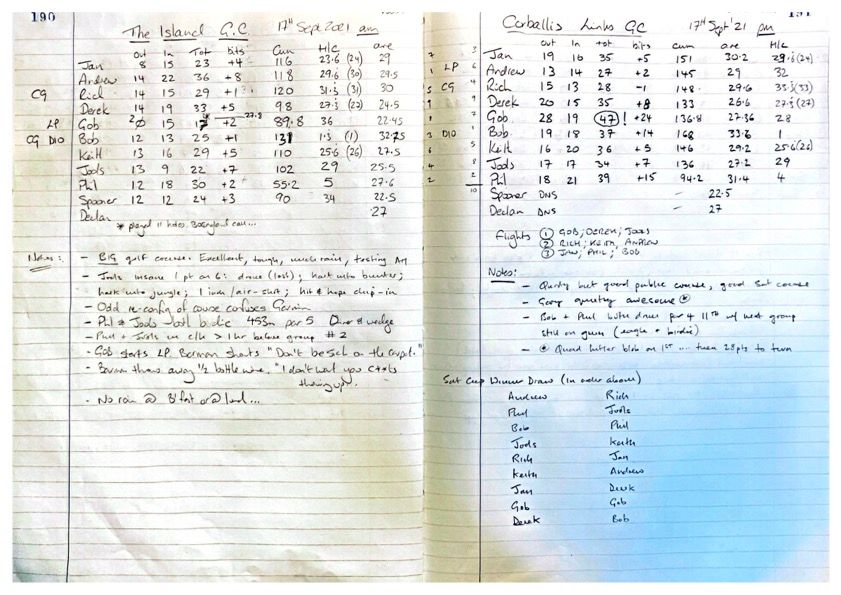 190
The Island G.C. 17th Sept 2021 am
out in Tot bits Cum H/C ave
Jan 8 15 23 +4 116 23.6 (24) 29
Andrew 14 22 36 +8 118 29.6 (30) 29.5
CG Rich 14 15 29 +1 120 31.3 (31) 30
Derek 14 19 33 +5 98 27.2 (27) 24.5
27.8
LP Gob 2 15 17 +2 89.8 36 22.45
CG D10 Bob 12 13 25 +1 131 1.3 (1) 32.75
Keith 13 16 29 +5 110 25.6 (26) 27.5
Jools 13 9 22 +7 102 29 25.5
Phil 12 18 30 +2 55.2 5 27.6
Spooner 12 12 24 +3 90 34 22.5
Declan 27
* played 11 holes
Notes: - BIG golf course. Excellent, tough, much rain, testing
- Jools insane 1 pt on 6: drive (lost); hack into bunker;
hack into jungle; 1 iron/air-shot; hit & hope chip-in
- Odd re-config of course confuses Garmin
- Phil & Jools birdie 453m par 5 Driver & wedge
- Phil + Jools in c/h > 1 hr before group #2
- Gob starts LP. Barman shouts "Don't be sick on the carpet."
- Barman throws away 1/2 bottle wine. "I don't want you
throwing up".
- No rain @ B'fast or @ lunch...
191
Corballis Links GC 17th Sept '21 pm
out in tot bits cum ave H/c
Jan 19 16 35 +5 151 30.2 (24)
LP Andrew 13 14 27 +2 145 29 32
CG Rich 15 13 28 -1 148 29.6 33.3 (33)
Derek 20 15 35 +8 133 26.6 27.2 (27)
Gob 28 19 47! +24 136.8 27.36 28
D10 Bob 19 18 37 +14 168 33.6 1
Keith 16 20 36 +5 146 29.2 25.6 (26)
Jools 17 17 34 +7 136 27.2 29
Phil 18 21 39 +15 94.2 31.4 4
Spooner DNS - 22.5
Declan DNS - 27
Flights 1 GOB; DEREK; JOOLS
2 RICH; KEITH, ANDREW
3 JAN; PHIL; BOB
Notes:
- Quirky but good public course, good Sat course
- Gary awesome *
- Bob + Phil both drive par 4 11th w/ next group
still on green (eagle + birdie)
- * Quad bitter blob on 1st .... then 28pts to turn
Sat Cup Winner Draw (in order above)
Andrew Rich
Phil Jools
Bob Phil
Jools Keith
Rich Jan
Keith Andrew
Jan Derek
Gob Gob
Derek Bob